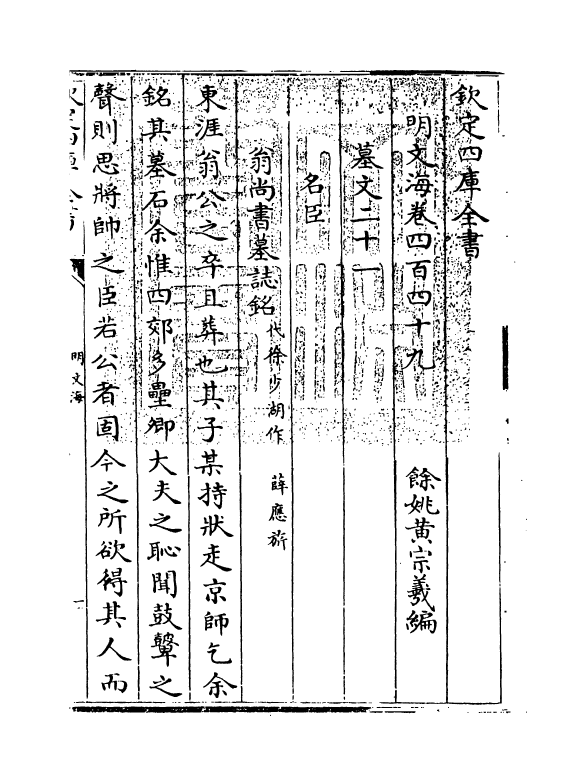 欽定四庫全書
明文海卷四百四十九
餘姚黃宗羲編
墓文二十一
名臣
翁尚書墓誌銘代徐少湖作 薛應旂
東涯翁公之卒且葬也其子某持狀走京師乞余
銘其墓石余惟四郊多壘卿大夫之恥聞鼓鼙之
聲則思將帥之臣若公者固今之所欲得其人而
欽定四庫全書
明文海
一